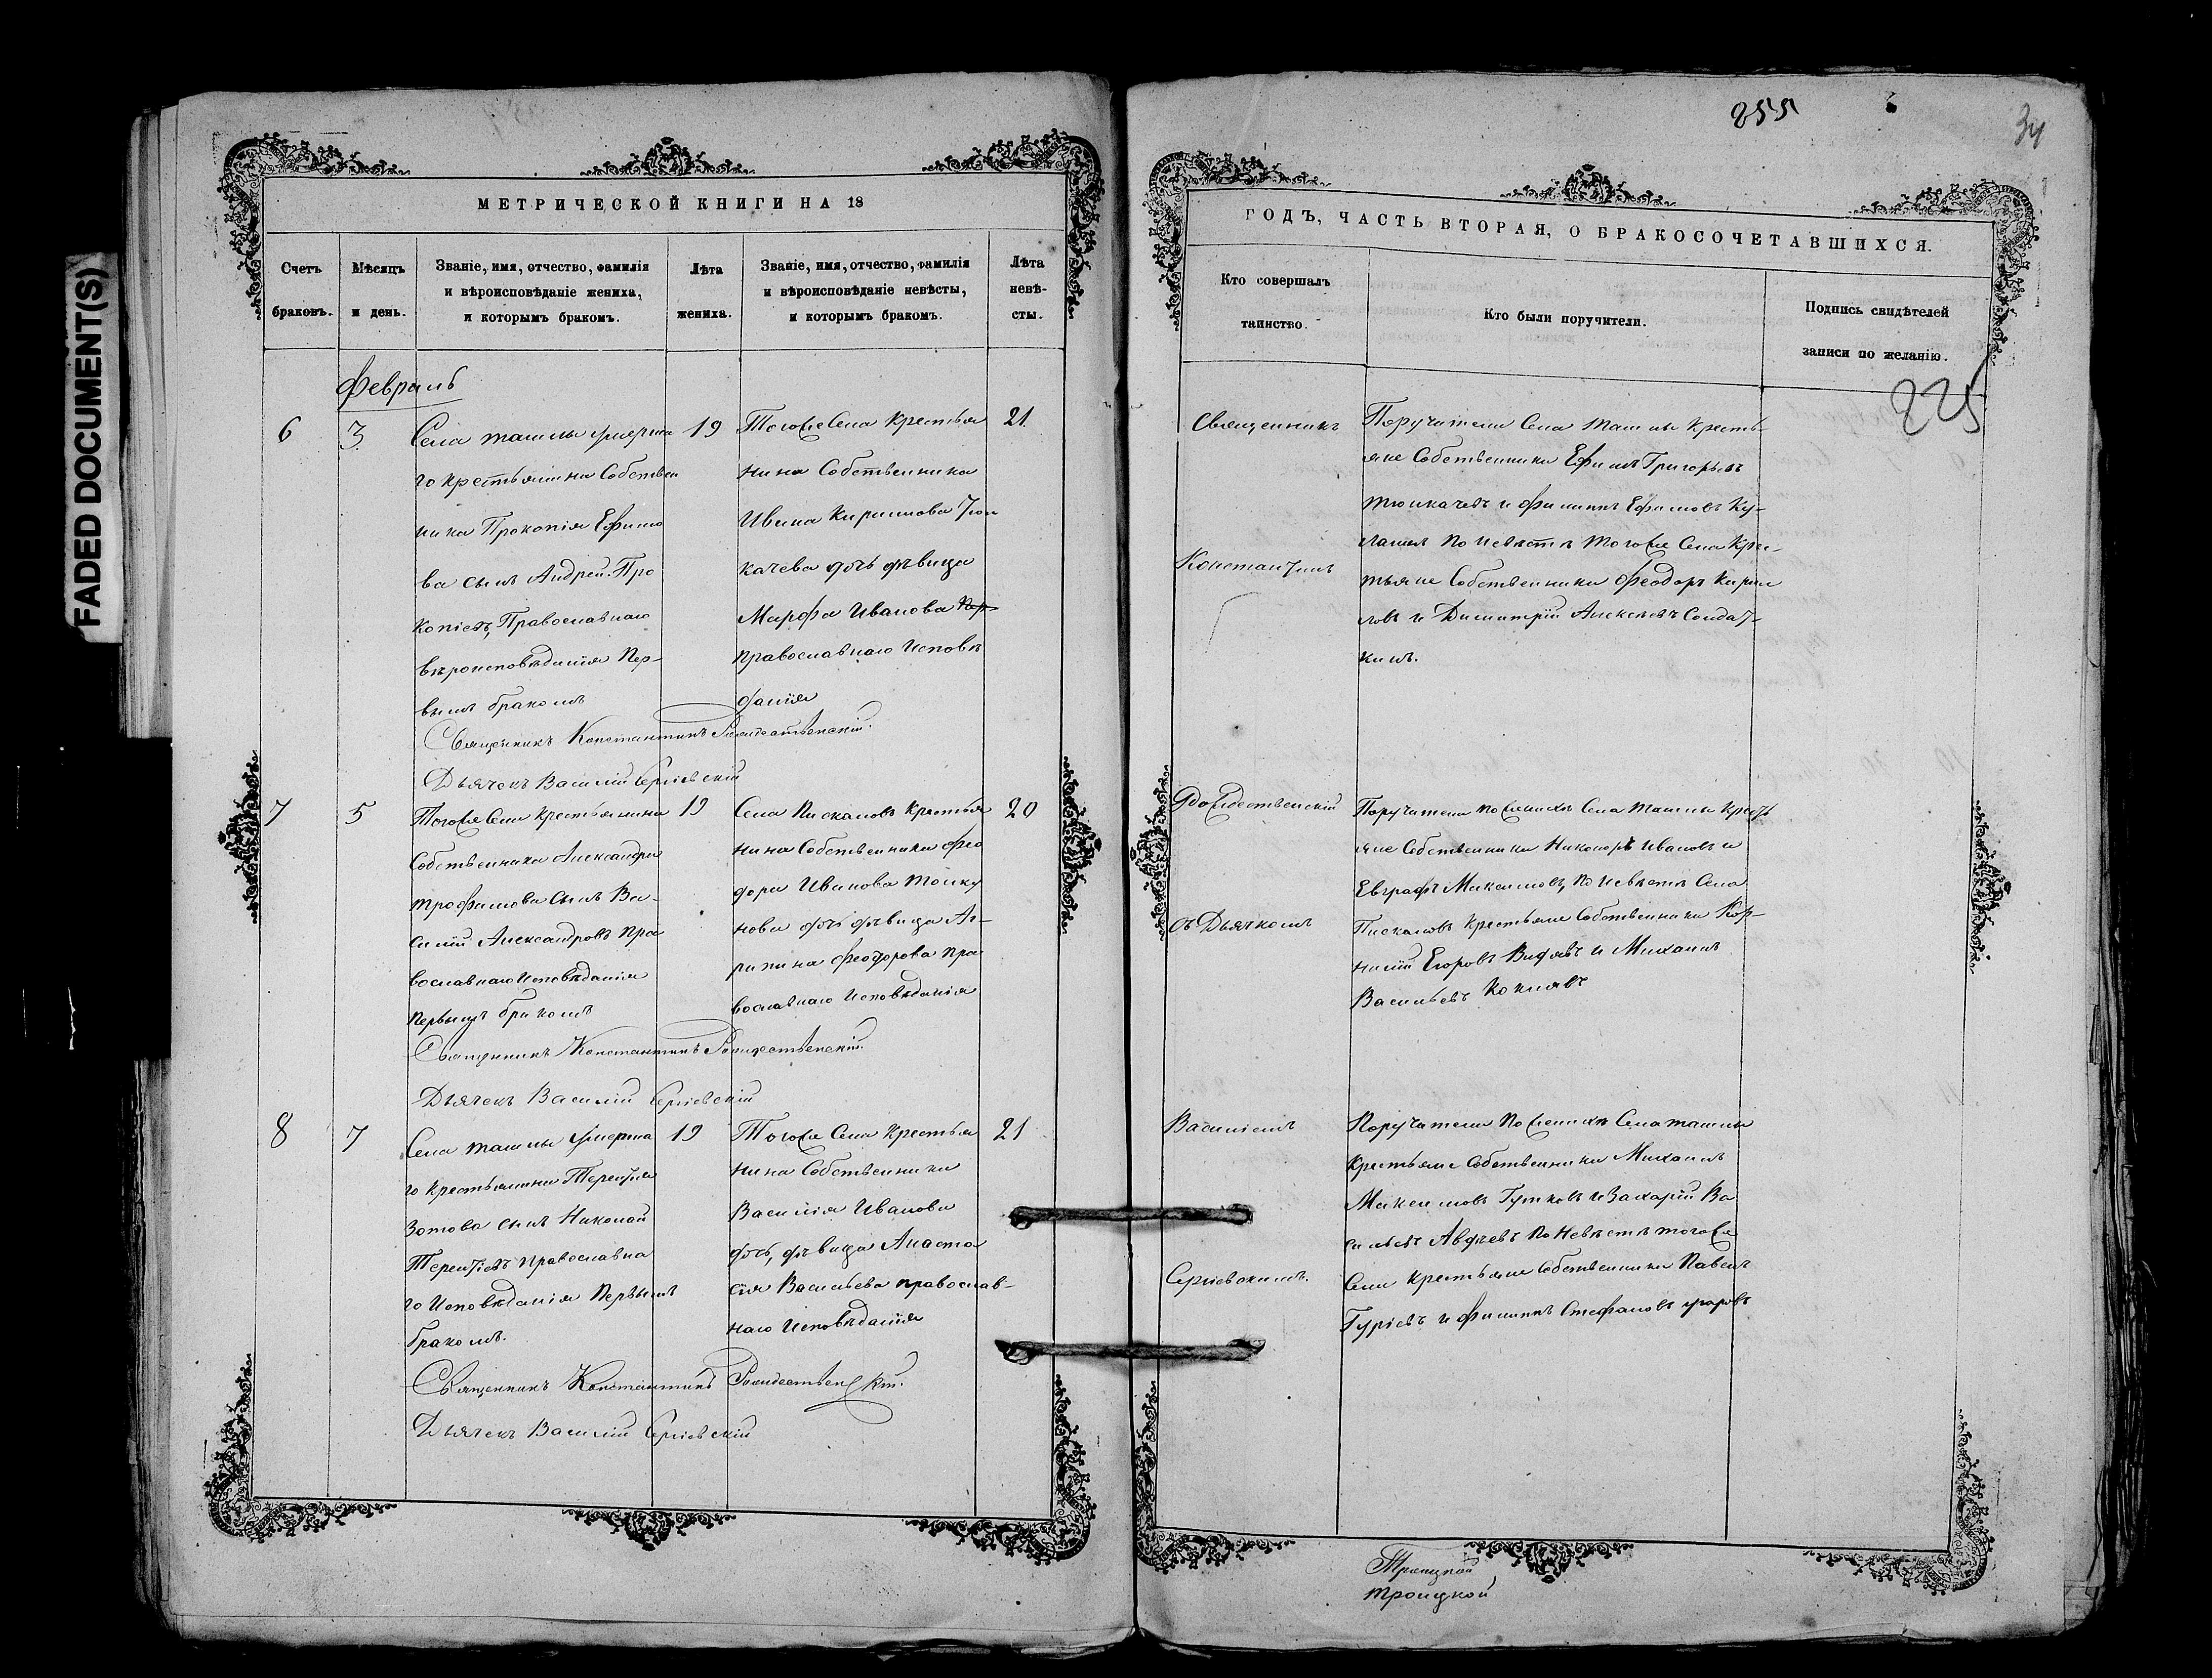 FADED DOCUMENT(S)
МЕТРИЧЕСКОЙ КНИГИ НА 18
Счетъ браковъ.
Мѣсяцъ и день.
Званіе, имя, отчество, фамилія
и вѣроисповѣданіе жениха,
и которымъ бракомъ.
Лѣта жениха.
Званіе, имя, отчество, фамилія
и вѣроисповѣданіе невѣсты,
и которымъ бракомъ.
Лѣта невѣ-
сты.
Февраль
6
3.
Села Ташлы умерша
го крестьянина Собствен
ника Прокопія Ефимо
ва сынъ Андрей Про
копіевъ, Православнаго
вѣроисповѣданія Пер-
вымъ бракомъ
19
Тогоже Села Крестья
нина Собственника
Ивана Кирилова Тол
качева дочь дѣвица
Марфа Иванова
православнаго Исповѣ
данія
21
Священникъ Константинъ Рождественскій.
Дьячекъ Василій Сергіевскій
7
5
Тогоже Села Крестьянина
Собственника Александра
Трофимова сынъ Ва-
силій Александровъ Пра
вославнаго Исповѣданія
Первымъ бракомъ
19
Села Пискаловъ Крестья
нина Собственника Фео
дора Иванова
нова дочь дѣвица Аг-
рипина Феодорова Пра
вославнаго Исповѣданія
20
Священникъ Константинъ Рождественскій.
Дьячекъ Василій Сергіевскій
8
7
Села Ташлы умерша
го крестьянина Терентія
Зотова сынъ Николай
Терентіевъ православна
го Исповѣданія Первымъ
бракомъ.
19
Тогоже Села Крестья
нина Собственника
Василія Иванова
дочь, дѣвица Анаста
сія Васильева православ-
наго Исповѣданія
21
Священникъ Константинъ Рождественскій.
Дьячекъ Василій Сергіевскій
255
34
ГОДЪ, ЧАСТЬ ВТОРАЯ, О БРАКОСОЧЕТАВШИХСЯ.
Кто совершалъ
таинство.
Кто были поручители.
Подпись свидѣтелей
записи по желанію.
225
Священникъ
Константинъ
Рождественскій
съ Дьячкомъ
Василіемъ
Сергіевскимъ.
Поручители Села Ташлы Кресть-
яне Собственники Ефимъ Григорьевъ
Толкачевъ и Филиппъ Ефимовъ Ку-
По Невѣстѣ Тогоже Села Крес-
тьяне Собственники Феодоръ Кирил
ловъ и Димитрій Алексѣевъ Солдат-
кинъ.
Поручители по Женихѣ Села Ташлы Кресть
яне Собственники Никаноръ Ивановъ и
Евграфъ Максимовъ, По Невѣстѣ Села
Пискаловъ Крестьяне Собственники Кор-
нилій Егоровъ и Михаилъ
Васильевъ
Поручители По Женихѣ Села Ташлы
Крестьяне Собственники Михаилъ
Максимовъ Гутковъ и Захарій Ва
сильевъ Авдѣевъ По Невѣстѣ тогоже
Села Крестьяне Собственники Павелъ
Гурѣевъ и Филиппъ Стефановъ
Троицкой
Троицкой